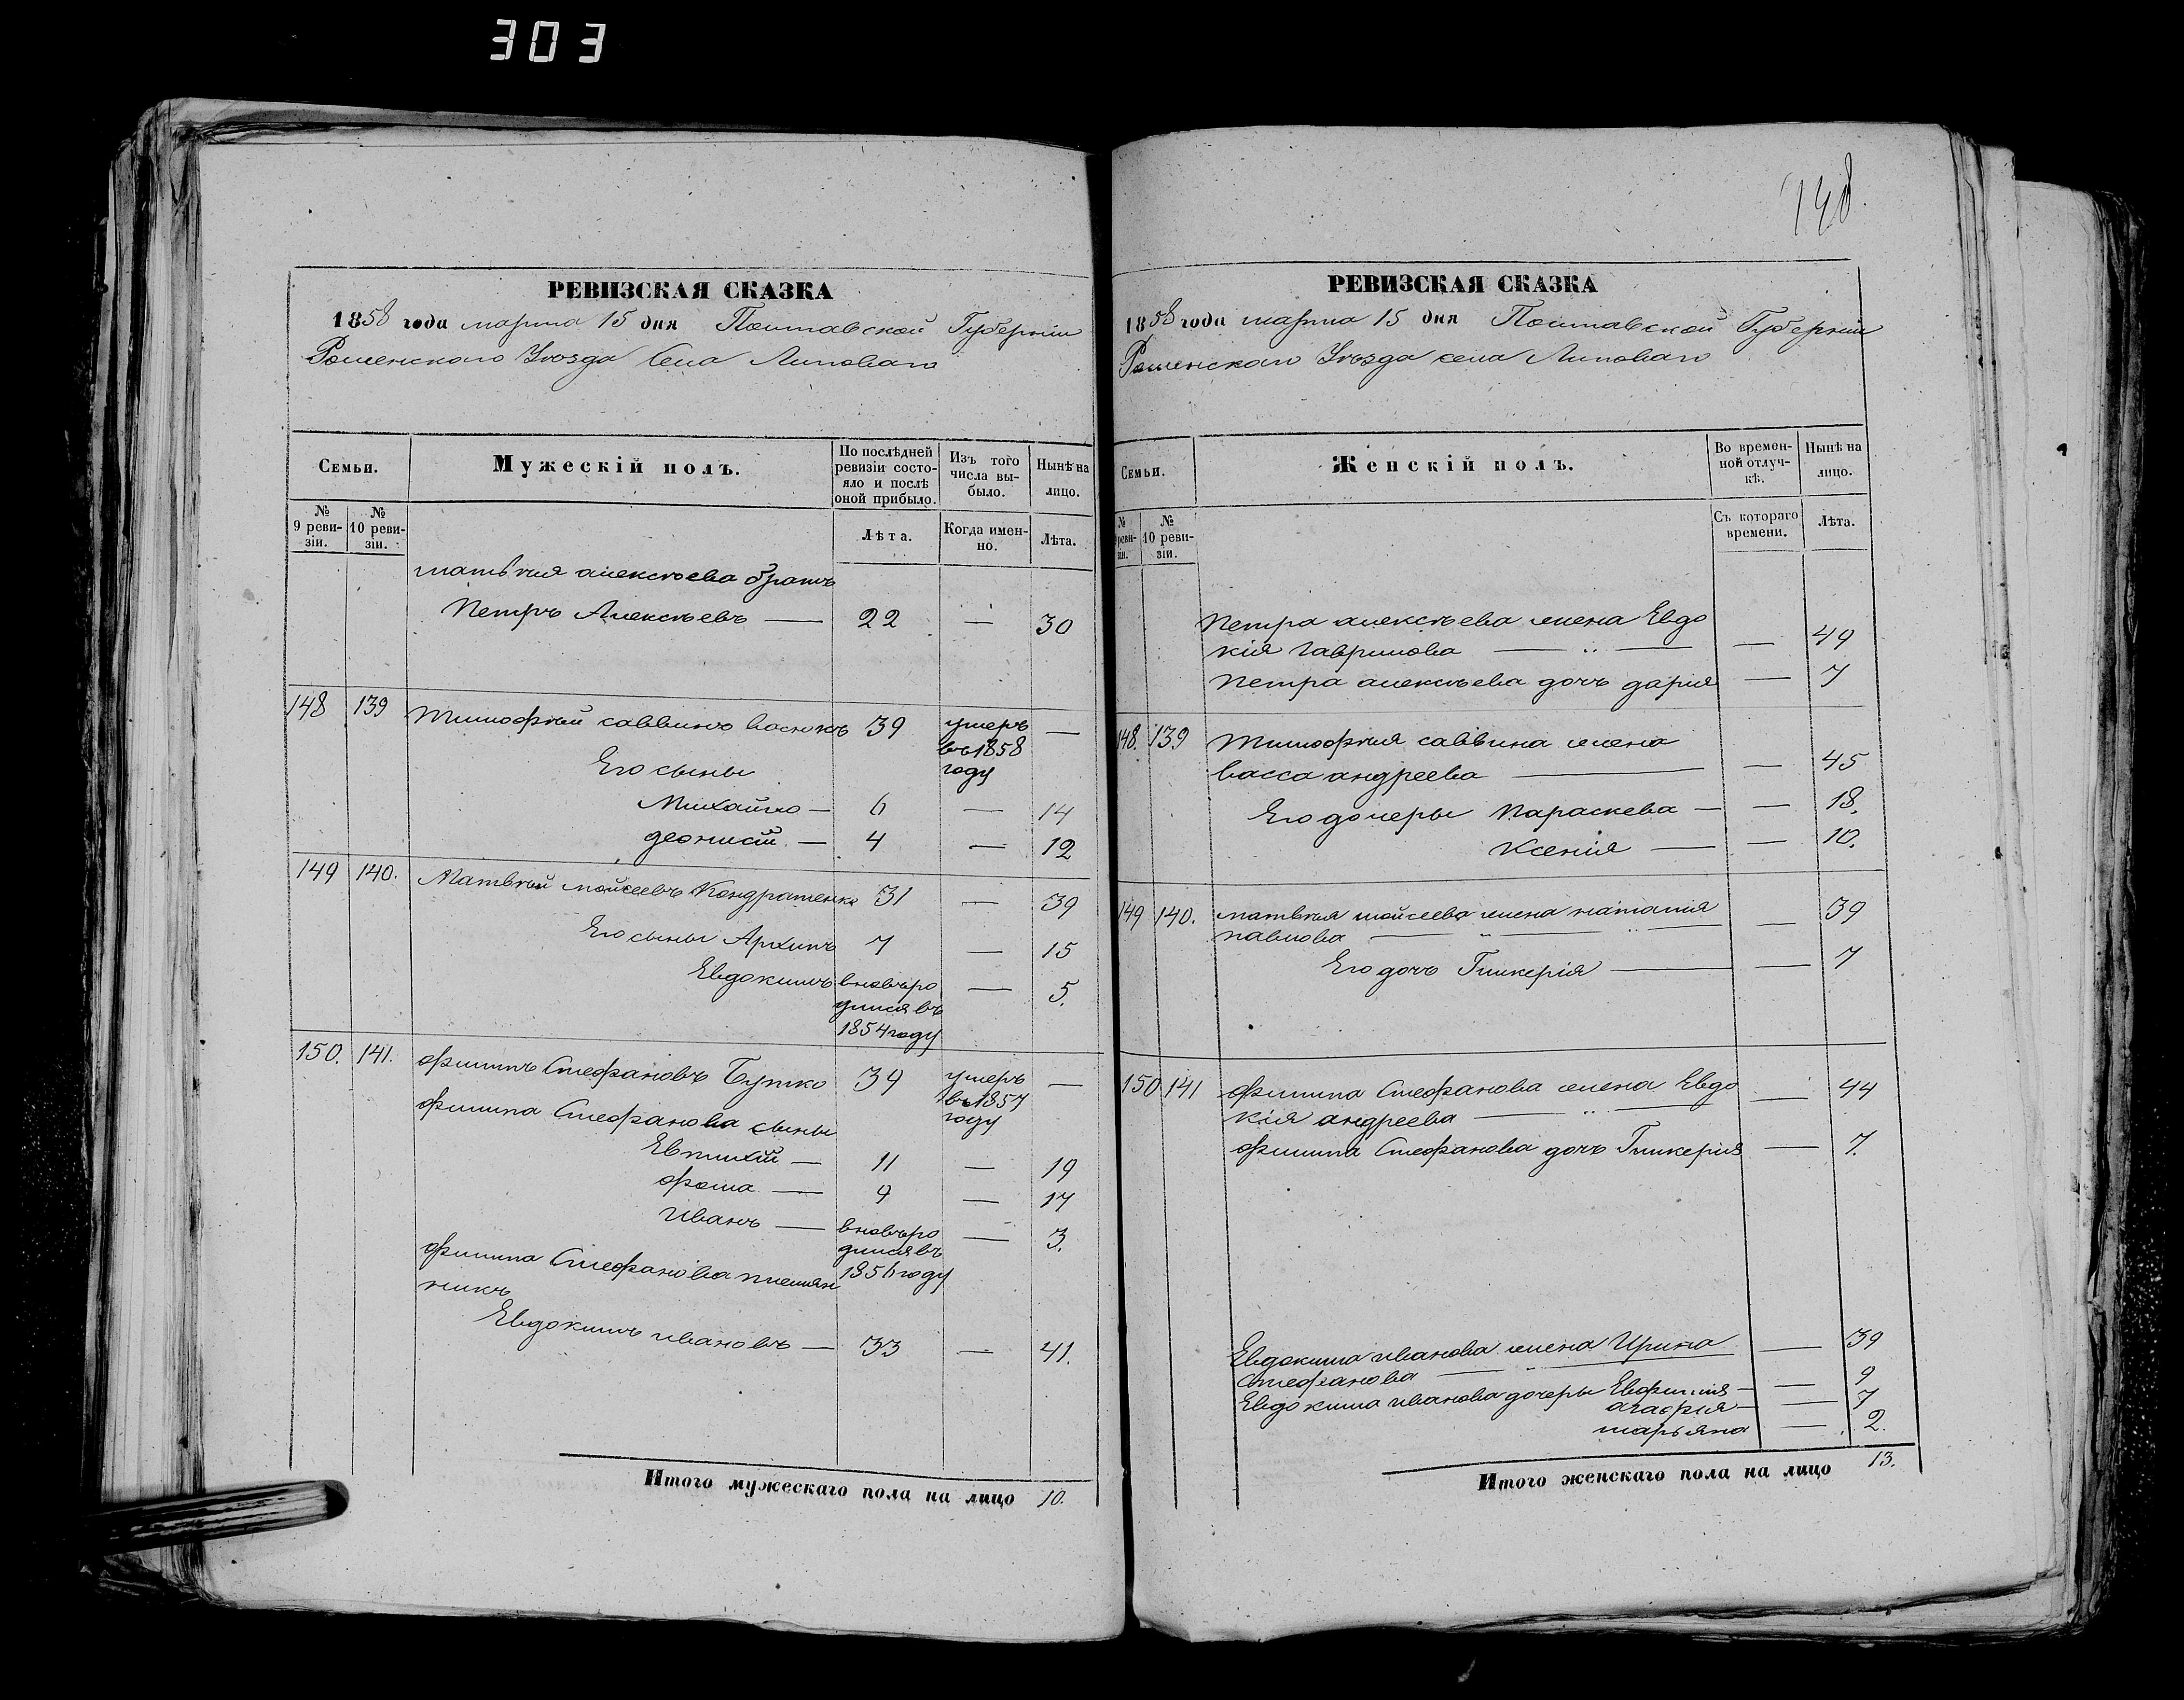 303
148.
РЕВИЗСКАЯ СКАЗКА
1858 года марта 15 дня Полтавской Губерніи
Роменского Уѣзда Села Липоваго
Семьи.
Мужескій полъ.
По послѣдней ревизіи состояло и послѣ оной прибыло.
Изъ того числа выбыло.
Нынѣ на лицо.
№ 9 ревизіи.
№ 10 ревизіи.
Лѣта.
Когда именно.
Лѣта.
матвѣя алексѣева братъ
Петръ Алексѣевъ — 22 — 30
148 139 Тимофѣй саввинъ васюкъ 39 умеръ —
въ 1858
Его сыны году
Михайло — 6 — 14
деонисій — 4 — 12
149 140. Матвѣй мойсеевъ Кондратенко 31 — 39
Его сыны Архипъ 7 — 15
Евдокимъ вновьро — 5.
дился въ
1854 году
150. 141. филипъ Стефановъ Бутко 39 умеръ —
въ 1857
филипа Стефанова сыны году
Евтихій — 11 — 19
фома — 9 — 17
Иванъ — вновьро — 3.
дился въ
филипа Стефанова племян 1856 году
никъ
Евдокимъ ивановъ — 33 — 41.
Итого мужескаго пола на лицо 10.
РЕВИЗСКАЯ СКАЗКА
1858 года марта 15 дня Полтавской Губерніи
Роменскаго Уѣзда села Липоваго
Семьи.
Женскій полъ.
Во временной отлучкѣ.
Нынѣ на лицо.
№ 9 ревизіи.
№ 10 ревизіи.
Съ котораго времени.
Лѣта.
Петра алексѣева жена Евдо
кія гаврилова — „ — — 49
Петра алексѣева дочь дарія — 7
148. 139 Тимофѣя саввина жена
васса андреева — — 45
Его дочеры Параскева — — 18.
Ксенія — — 10.
149 140. матвѣя мойсеева жена наталія — 39
павлова — „ — „ —
Его дочь Гликерія — — 7
150 141 филипа Стефанова жена Евдо — 44
кія андреева — „ —
филипа Стефанова дочь Гликерія — 7.
Евдокима иванова жена Ирина — 39
Стефанова — „ —
Евдокима иванова дочеры Евфимія — — 9
агафія — — 7
марьяна — 2.
Итого женскаго пола на лицо 13.